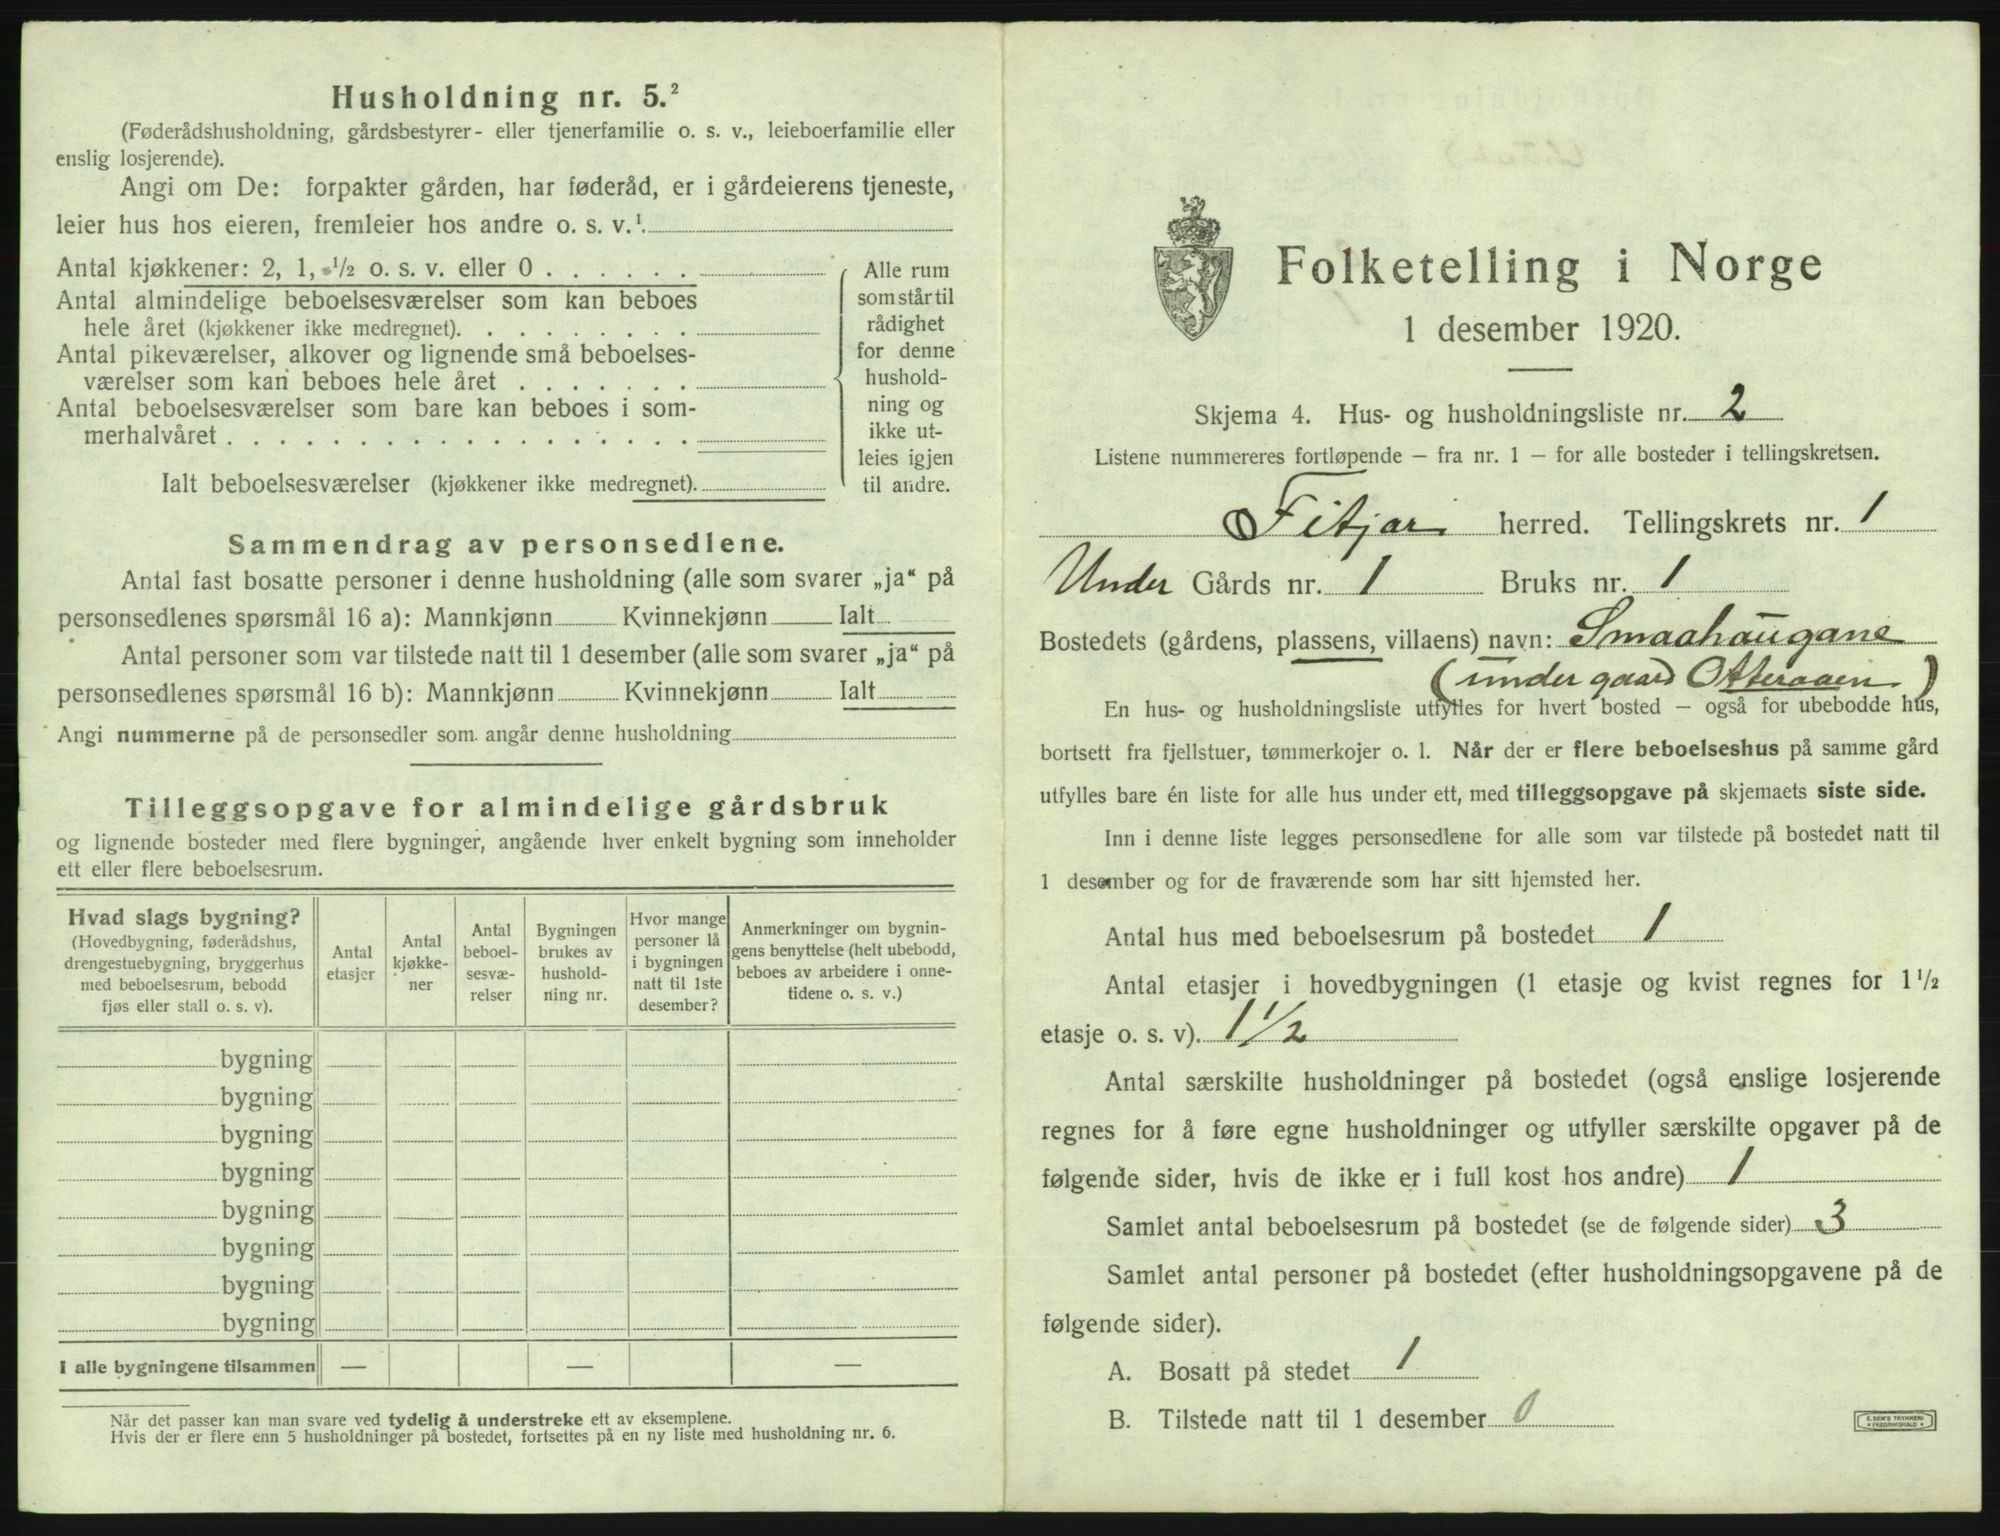 Husholdning nr. 5.²
(Føderådshusholdning, gårdsbestyrer- eller tjenerfamilie o. s. v., leieboerfamilie eller
enslig losjerende).
Angi om De: forpakter gården, har føderåd, er i gårdeierens tjeneste,
leier hus hos eieren, fremleier hos andre o. s. v.¹
Antal kjøkkener: 2, 1, ½ o. s. v. eller 0 . . . . . .
Antal almindelige beboelsesværelser som kan beboes
hele året (kjøkkener ikke medregnet). . . . . . . . .
Antal pikeværelser, alkover og lignende små beboelses-
værelser som kan beboes hele året . . . . . . .
Antal beboelsesværelser som bare kan beboes i som-
merhalvåret . . . . . . . . . . . . . . . . . .
Ialt beboelsesværelser (kjøkkener ikke medregnet).
Alle rum
som står til
rådighet
for denne
hushold-
ning og
ikke ut-
leies igjen
til andre.
Sammendrag av personsedlene.
Antal fast bosatte personer i denne husholdning (alle som svarer „ja“ på
personsedlenes spørsmål 16 a): Mannkjønn Kvinnekjønn Ialt
Antal personer som var tilstede natt til 1 desember (alle som svarer „ja“ på
personsedlenes spørsmål 16 b): Mannkjønn Kvinnekjønn Ialt
Angi nummerne på de personsedler som angår denne husholdning
Tilleggsopgave for almindelige gårdsbruk
og lignende bosteder med flere bygninger, angående hver enkelt bygning som inneholder
ett eller flere beboelsesrum.
Hvad slags bygning?
(Hovedbygning, føderådshus,
drengestuebygning, bryggerhus
med beboelsesrum, bebodd
fjøs eller stall o. s. v).
Antal
etasjer
Antal
kjøkke-
ner
Antal
beboel-
sesvæ-
relser
Bygningen
brukes av
hushold-
ning nr.
Hvor mange
personer lå
i bygningen
natt til 1ste
desember?
Anmerkninger om bygnin-
gens benyttelse (helt ubebodd,
beboes av arbeidere i onne-
tidene o. s. v.)
bygning
bygning
bygning
bygning
bygning
bygning
bygning
bygning
I alle bygningene tilsammen — — —
Når det passer kan man svare ved tydelig å understreke ett av eksemplene.
Hvis der er flere enn 5 husholdninger på bostedet, fortsettes på en ny liste med husholdning nr. 6.
Folketelling i Norge
1 desember 1920.
Skjema 4. Hus- og husholdningsliste nr. 2
Listene nummereres fortløpende — fra nr. 1 — for alle bosteder i tellingskretsen.
Fitjar herred. Tellingskrets nr. 1
Under Gårds nr. 1 Bruks nr. 1
Bostedets (gårdens, plassens, villaens) navn: Smaahaugane
(under gaard Otteraaen)
En hus- og husholdningsliste utfylles for hvert bosted — også for ubebodde hus,
bortsett fra fjellstuer, tømmerkojer o. l. Når der er flere beboelseshus på samme gård
utfylles bare én liste for alle hus under ett, med tilleggsopgave på skjemaets siste side.
Inn i denne liste legges personsedlene for alle som var tilstede på bostedet natt til
1 desember og for de fraværende som har sitt hjemsted her.
Antal hus med beboelsesrum på bostedet 1
Antal etasjer i hovedbygningen (1 etasje og kvist regnes for 1½
etasje o. s. v). 1½
Antal særskilte husholdninger på bostedet (også enslige losjerende
regnes for å føre egne husholdninger og utfyller særskilte opgaver på de
følgende sider, hvis de ikke er i full kost hos andre) 1
Samlet antal beboelsesrum på bostedet (se de følgende sider) 3
Samlet antal personer på bostedet (efter husholdningsopgavene på de
følgende sider).
A. Bosatt på stedet 1
B. Tilstede natt til 1 desember 0
E. SEM'S TRYKKERI
FREDRIKSHALD